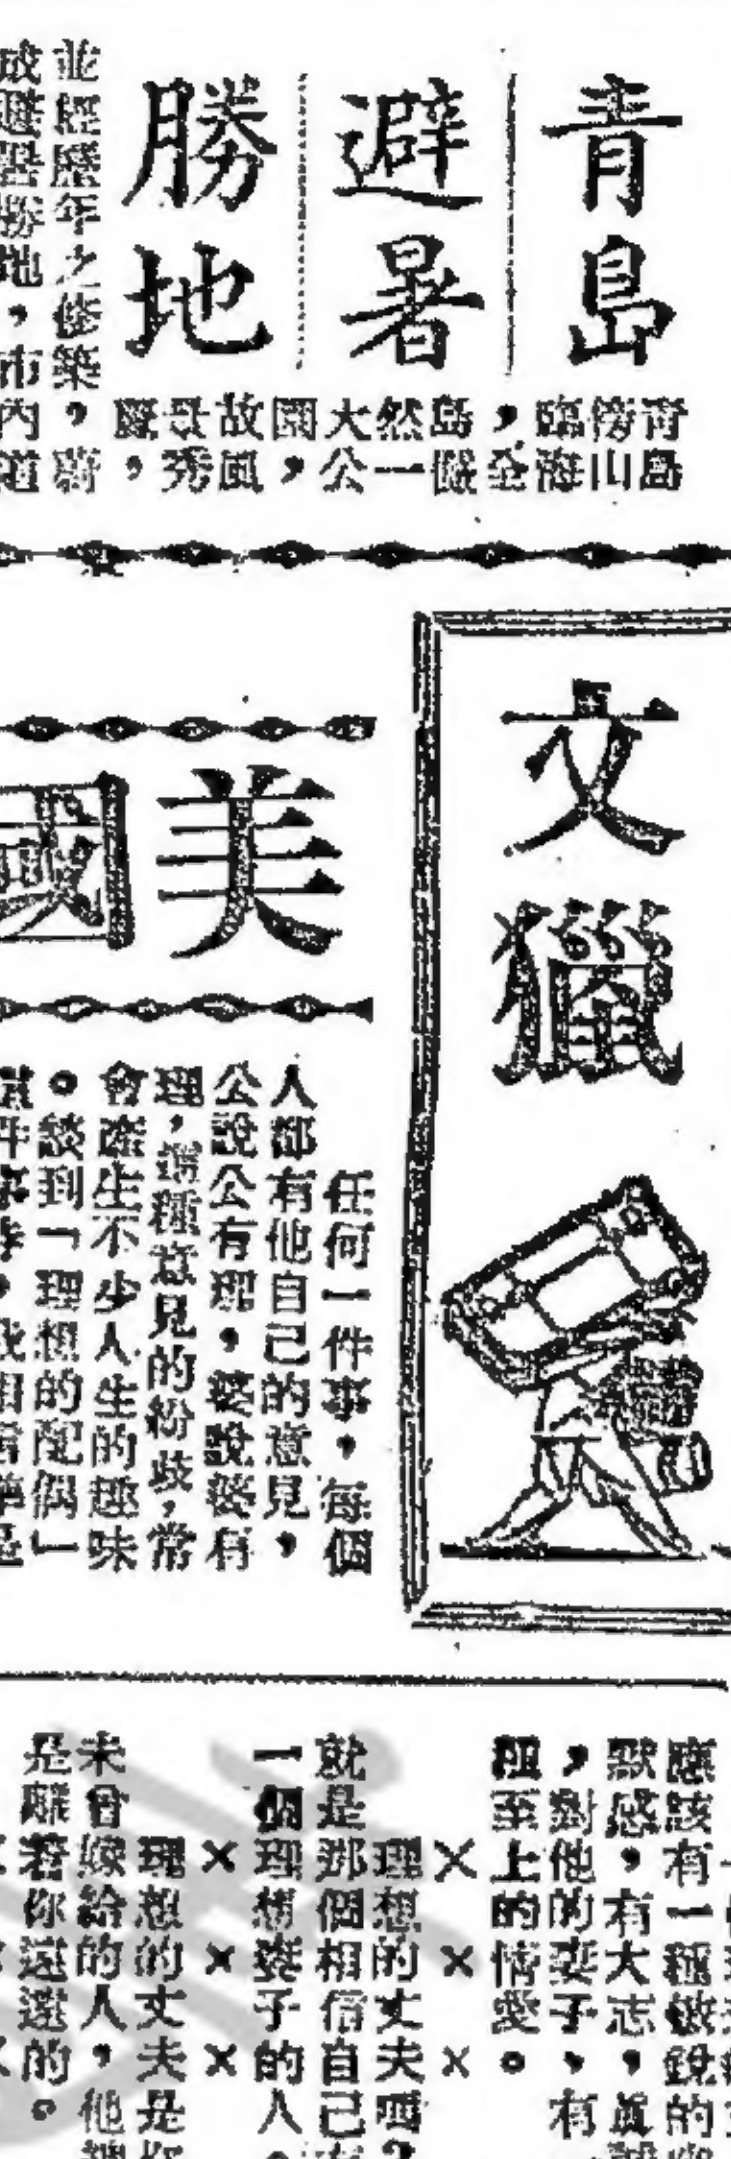 青島
避暑
勝地
青島
傍山
臨海
，全
島儼
然一
大公
園，
故風
景秀
麗，
並經歷年之修築，蔚
成避暑勝地，市內道
文獵
美國
任何一件事，每個
人都有他自己的意見，
公說公有理，婆說婆有
理，這種意見的紛歧，常
會產生不少人生的趣味
。談到「理想的配偶」
應該有一種敏銳的幽
默感，有大志，真誠
，對他的妻子，有一
種至上的情愛。
× × ×
理想的丈夫嗎？
就是那個相信自己有
一個理想妻子的人。
× × ×
理想的丈夫是你
未曾嫁給的人，他
是離着你遠遠的。